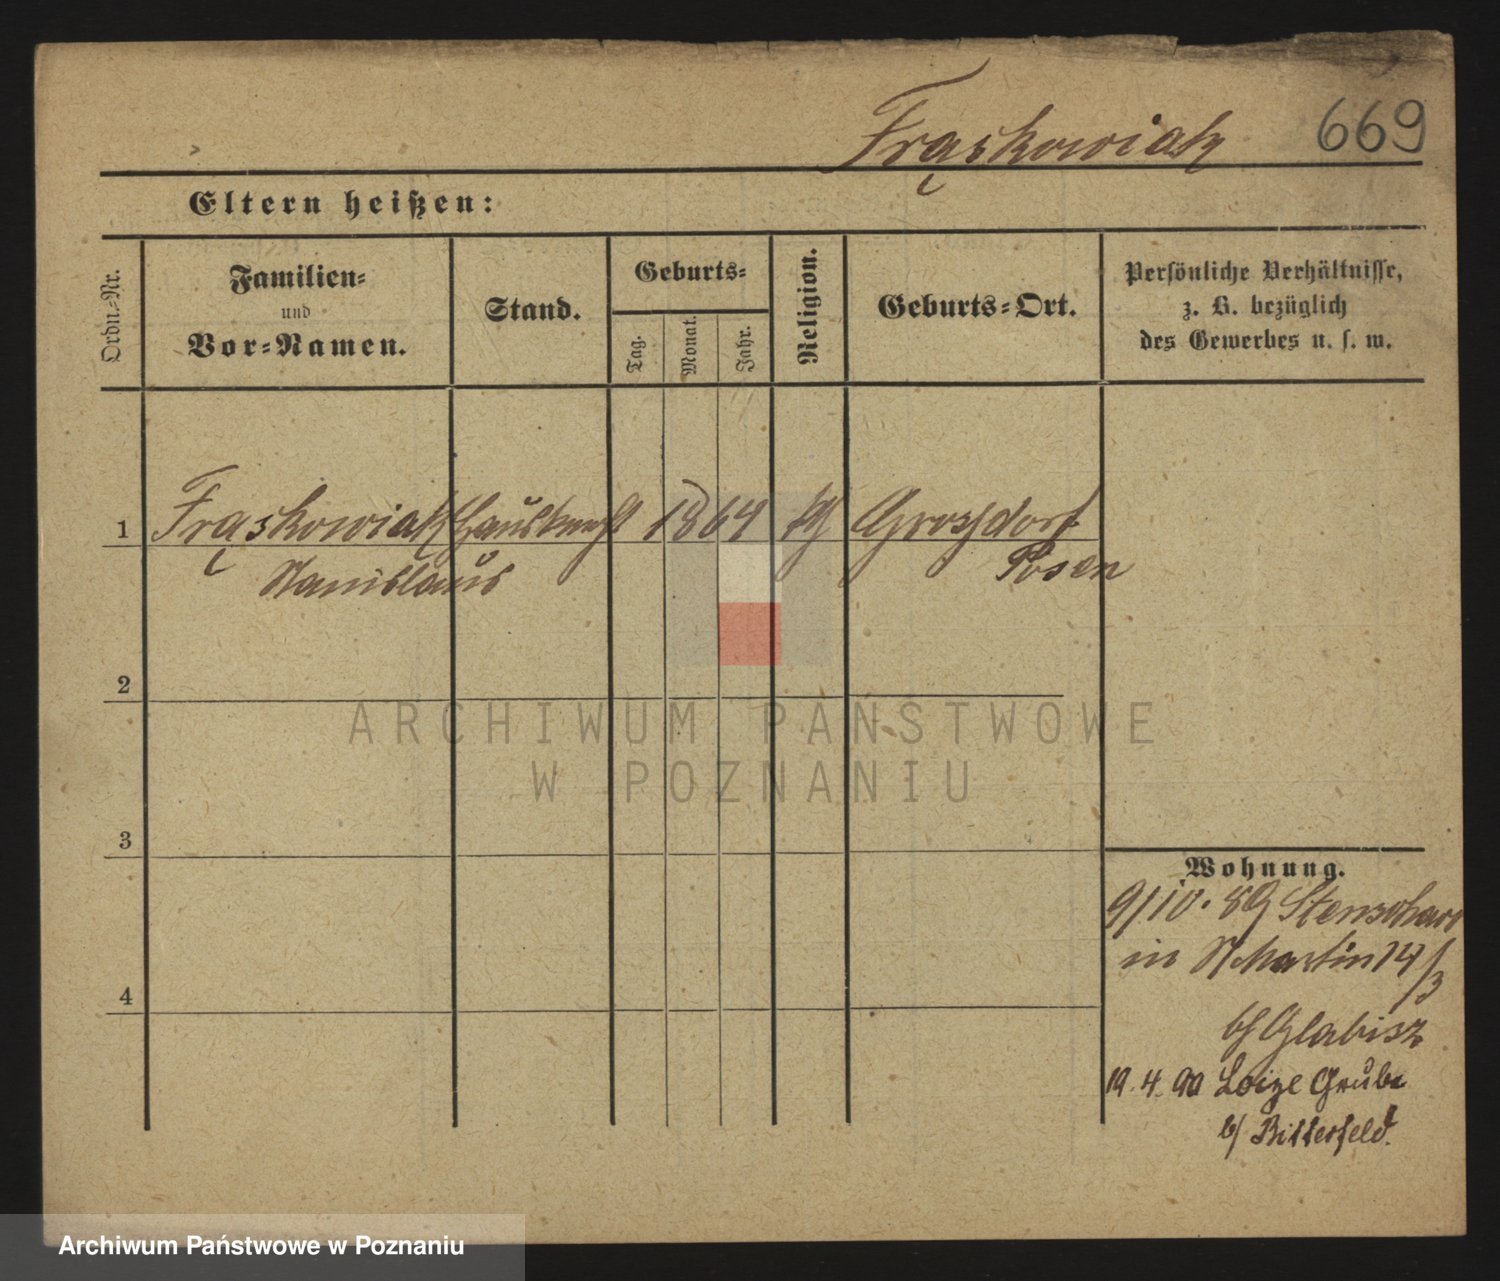 Frąskowiak
669
Eltern heißen:
Ordn.-Nr.
Familien-
und
Vor-Namen.
Stand.
Geburts-
Tag.
Monat.
Jahr.
Religion.
Geburts-Ort.
Persönliche Verhältnisse,
z. B. bezüglich
des Gewerbes u. s. w.
1 Frąskowiak Hausknecht 1864 Grossdorf
Stanislaus Posen
2
3
4
Wohnung.
9/10. 89
in St Martin 14/3
b/ Glabisz
19. 4. 90 Grube
b/ Bitterfeld.
ARCHIWUM PAŃSTWOWE
W POZNANIU
Archiwum Państwowe w Poznaniu